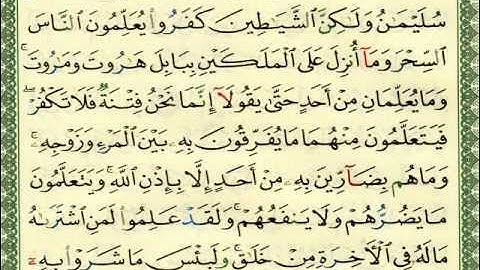 سُلَيْمَٰنُ وَلَٰكِنَّ ٱلشَّيَٰطِينَ كَفَرُوا۟ يُعَلِّمُونَ ٱلنَّاسَ
ٱلسِّحْرَ وَمَآ أُنزِلَ عَلَى ٱلْمَلَكَيْنِ بِبَابِلَ هَٰرُوتَ وَمَٰرُوتَ ۚ
وَمَا يُعَلِّمَانِ مِنْ أَحَدٍ حَتَّىٰ يَقُولَآ إِنَّمَا نَحْنُ فِتْنَةٌ فَلَا تَكْفُرْ ۖ
فَيَتَعَلَّمُونَ مِنْهُمَا مَا يُفَرِّقُونَ بِهِۦ بَيْنَ ٱلْمَرْءِ وَزَوْجِهِۦ ۚ
وَمَا هُم بِضَآرِّينَ بِهِۦ مِنْ أَحَدٍ إِلَّا بِإِذْنِ ٱللَّهِ ۚ وَيَتَعَلَّمُونَ
مَا يَضُرُّهُمْ وَلَا يَنفَعُهُمْ ۚ وَلَقَدْ عَلِمُوا۟ لَمَنِ ٱشْتَرَىٰهُ
مَا لَهُۥ فِى ٱلْءَاخِرَةِ مِنْ خَلَٰقٍ ۚ وَلَبِئْسَ مَا شَرَوْا۟ بِهِۦٓ